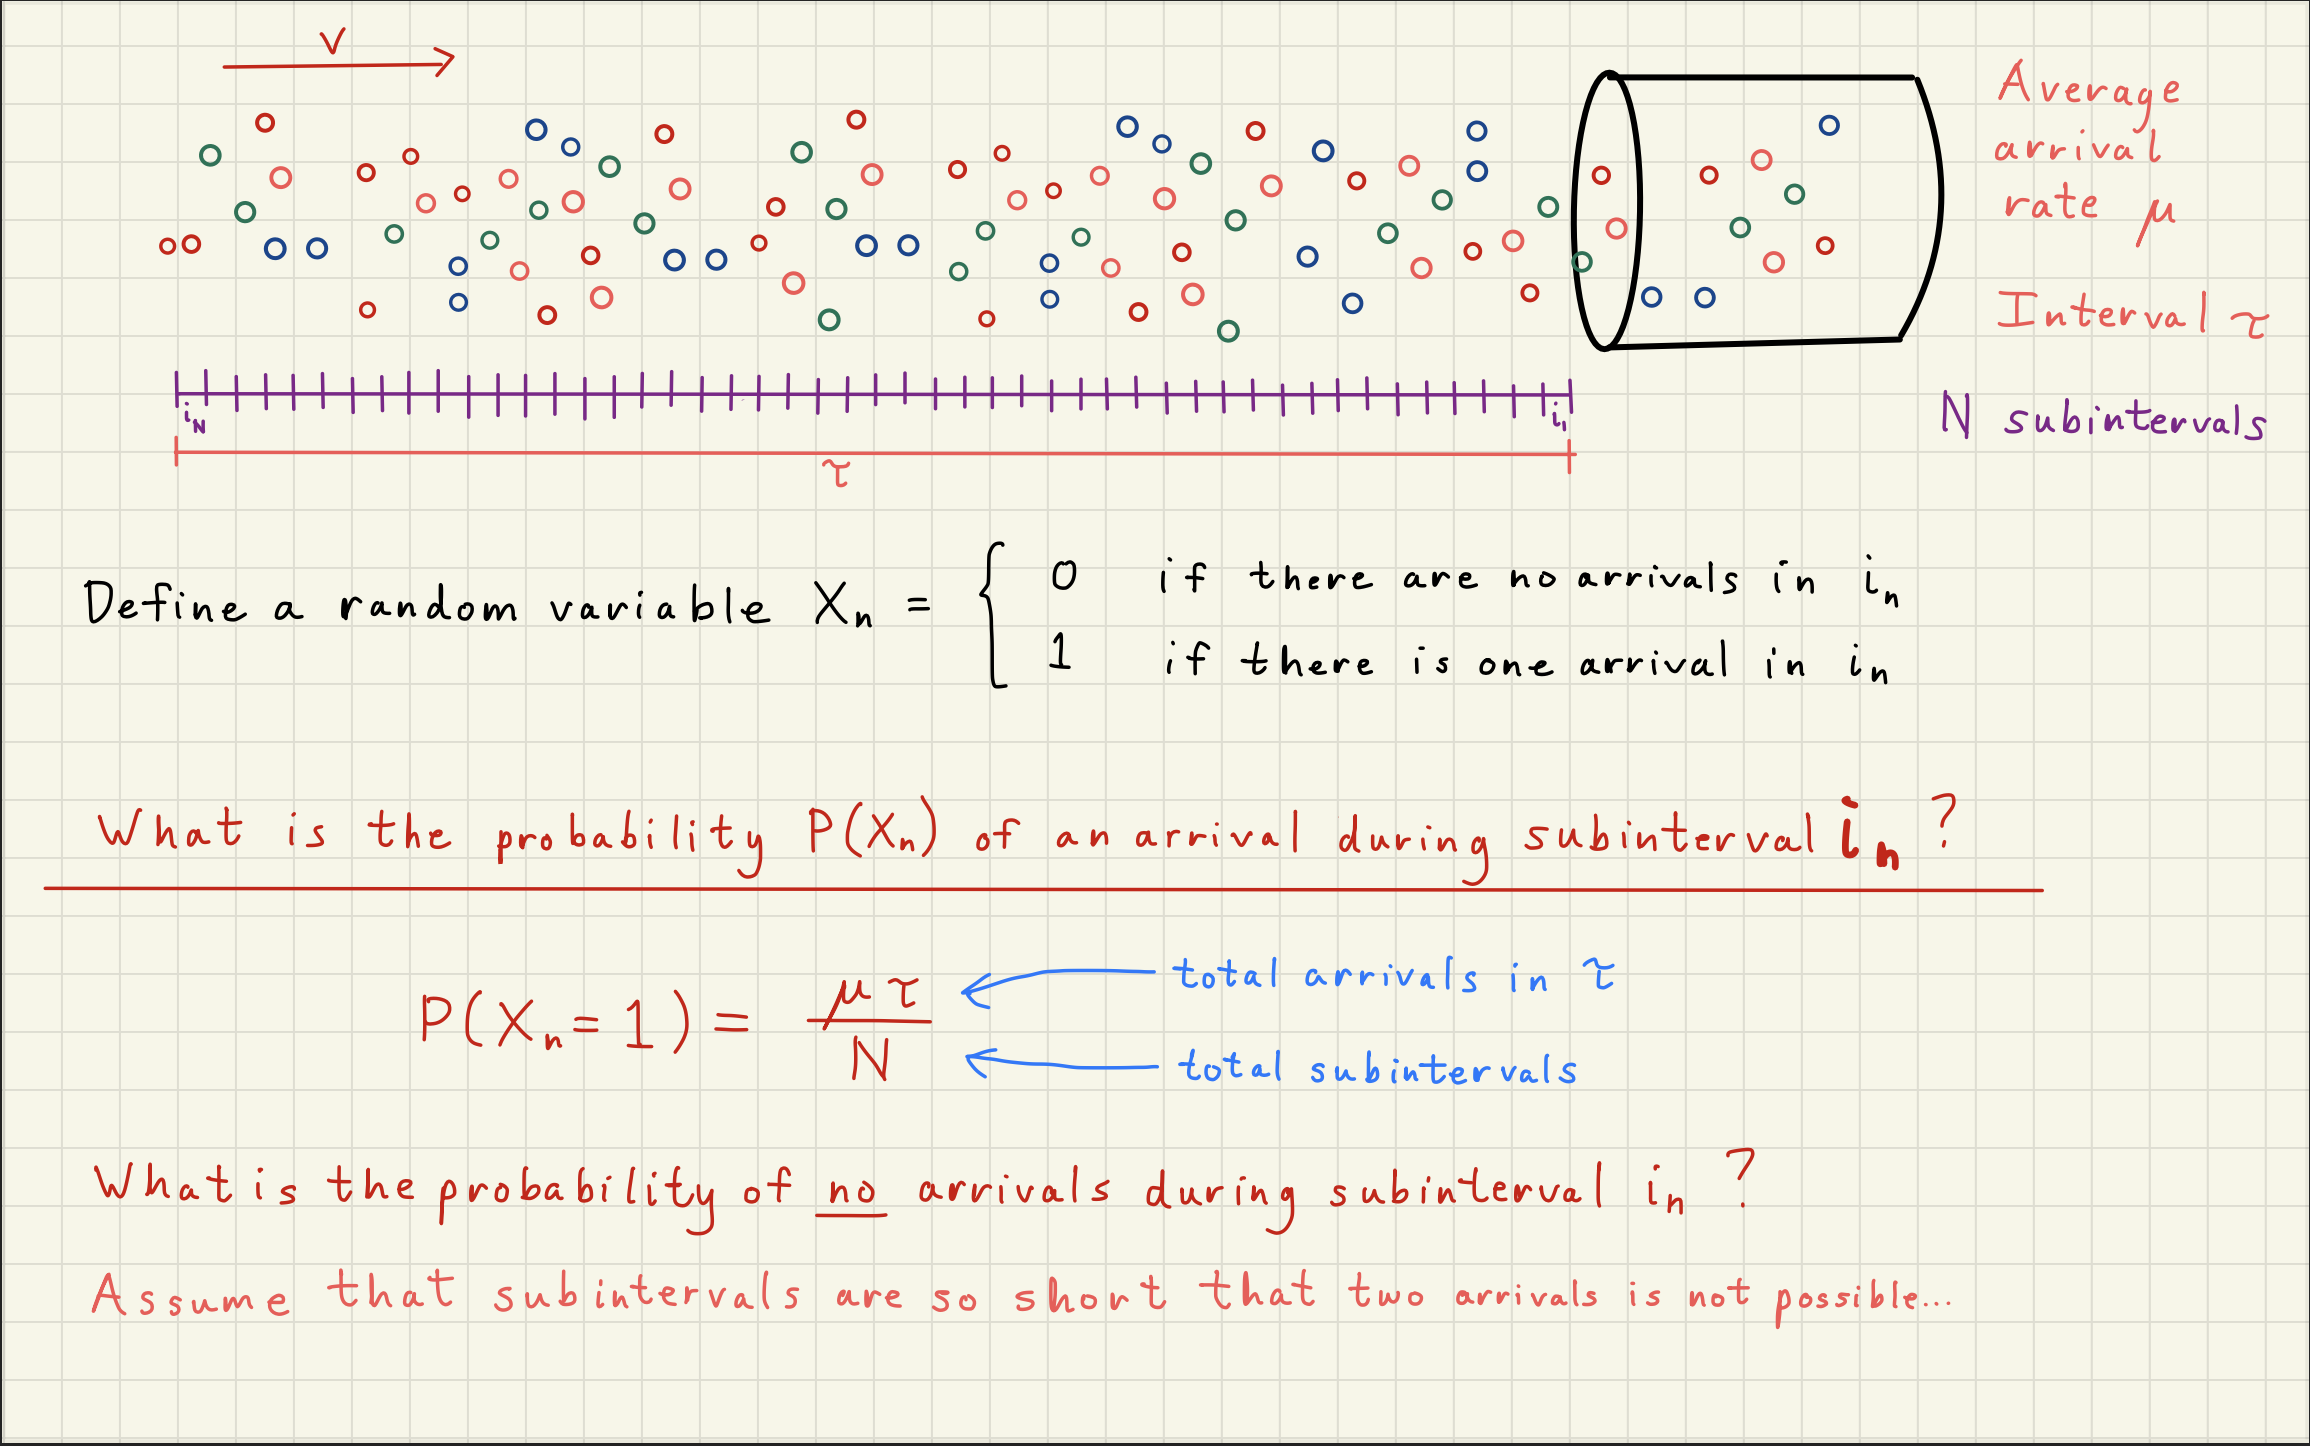 v
Average
arrival
rate μ
Interval τ
i_N i_1
N subintervals
τ
Define a random variable X_n = { 0 if there are no arrivals in i_n
1 if there is one arrival in i_n
What is the probability P(X_n) of an arrival during subinterval i_n ?
P(X_n = 1) = μτ / N
total arrivals in τ
total subintervals
What is the probability of no arrivals during subinterval i_n ?
Assume that subintervals are so short that two arrivals is not possible...